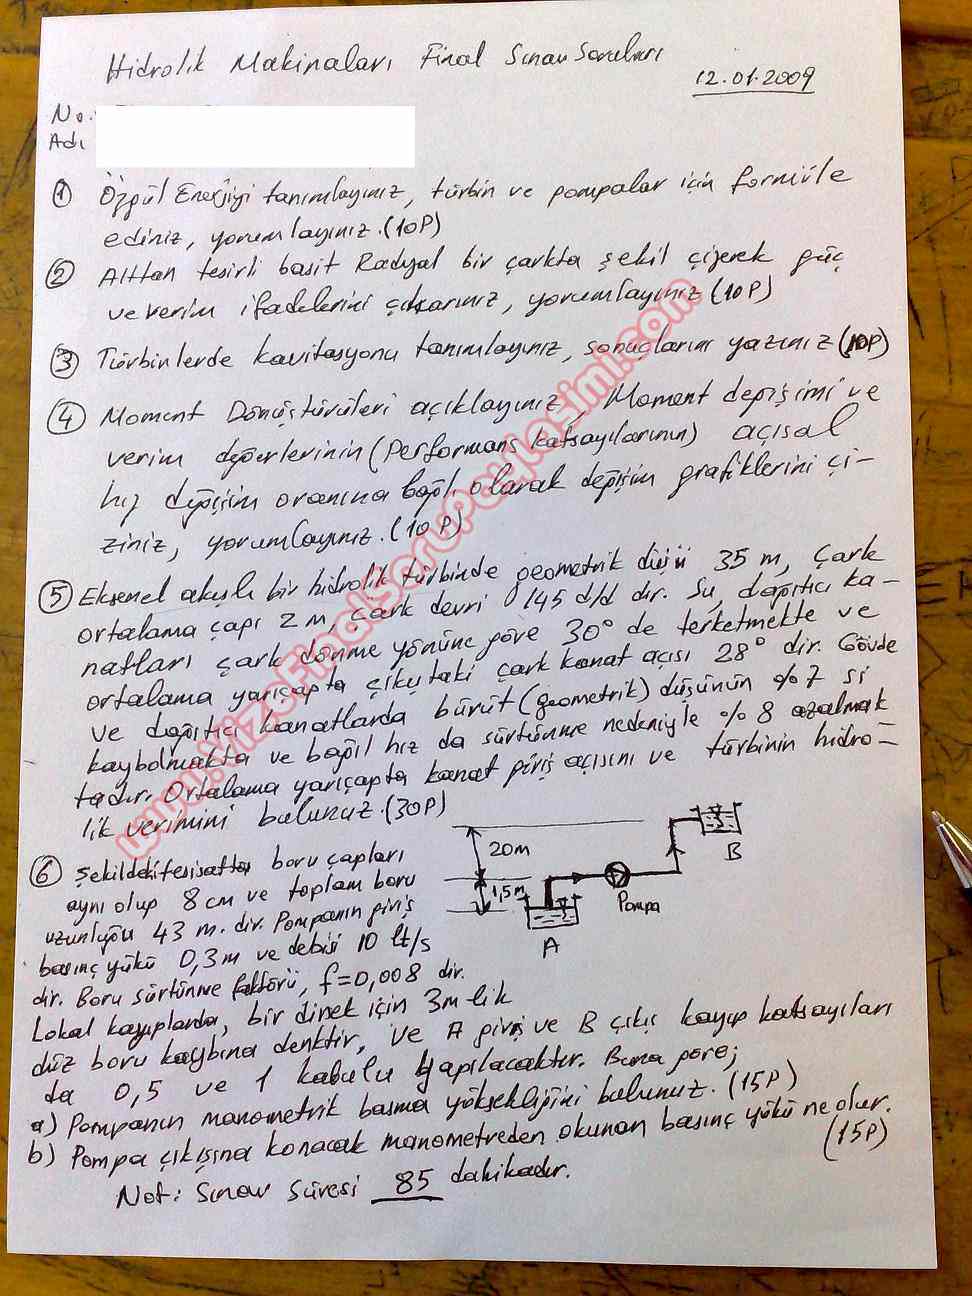 Hidrolik Makinaları Final Sınav Soruları
12.01.2009
No:
Adı
① Özgül Enerjiyi tanımlayınız, türbin ve pompalar için formüle
ediniz, yorumlayınız. (10P)
② Alttan tesirli basit Radyal bir çarkta şekil çizerek güç
ve verim ifadelerini çıkarınız, yorumlayınız (10P)
③ Türbinlerde kavitasyonu tanımlayınız, sonuçlarını yazınız (10P)
④ Moment Dönüştürüleri açıklayınız, Moment değişimi ve
verim değerlerinin (Performans katsayılarının) açısal
hız değişim oranına bağlı olarak değişim grafiklerini çi-
ziniz, yorumlayınız. (10P)
⑤ Eksenel akışlı bir hidrolik türbinde geometrik düşü 35 m, çark
ortalama çapı 2 m, çark devri 145 d/d dır. Su, dağıtıcı ka-
natları çark dönme yönüne göre 30° de terketmekte ve
ortalama yarıçapta çıkıştaki çark kanat açısı 28° dir. Gövde
ve dağıtıcı kanatlarda bürüt (geometrik) düşünün %7 si
kaybolmakta ve bağıl hız da sürtünme nedeniyle %8 azalmak
tadır. Ortalama yarıçapta kanat giriş açısını ve türbinin hidro-
lik verimini bulunuz. (30P)
⑥ Şekildeki tesisatta boru çapları
aynı olup 8 cm ve toplam boru
uzunluğu 43 m. dir. Pompanın giriş
basınç yükü 0,3 m ve debisi 10 lt/s
dir. Boru sürtünme faktörü, f=0,008 dir.
Lokal kayıplarda, bir dirsek için 3m lik
düz boru kaybına denktir, ve A giriş ve B çıkış kayıp katsayıları
da 0,5 ve 1 kabulu yapılacaktır. Buna göre;
a) Pompanın manometrik basma yüksekliğini bulunuz. (15P)
b) Pompa çıkışına konacak manometreden okunan basınç yükü ne olur.
(15P)
Not: Sınav Süresi 85 dakikadır.
20m
1,5m
A
Pompa
B
www.HizaoFinalSoruPaylasimi.com